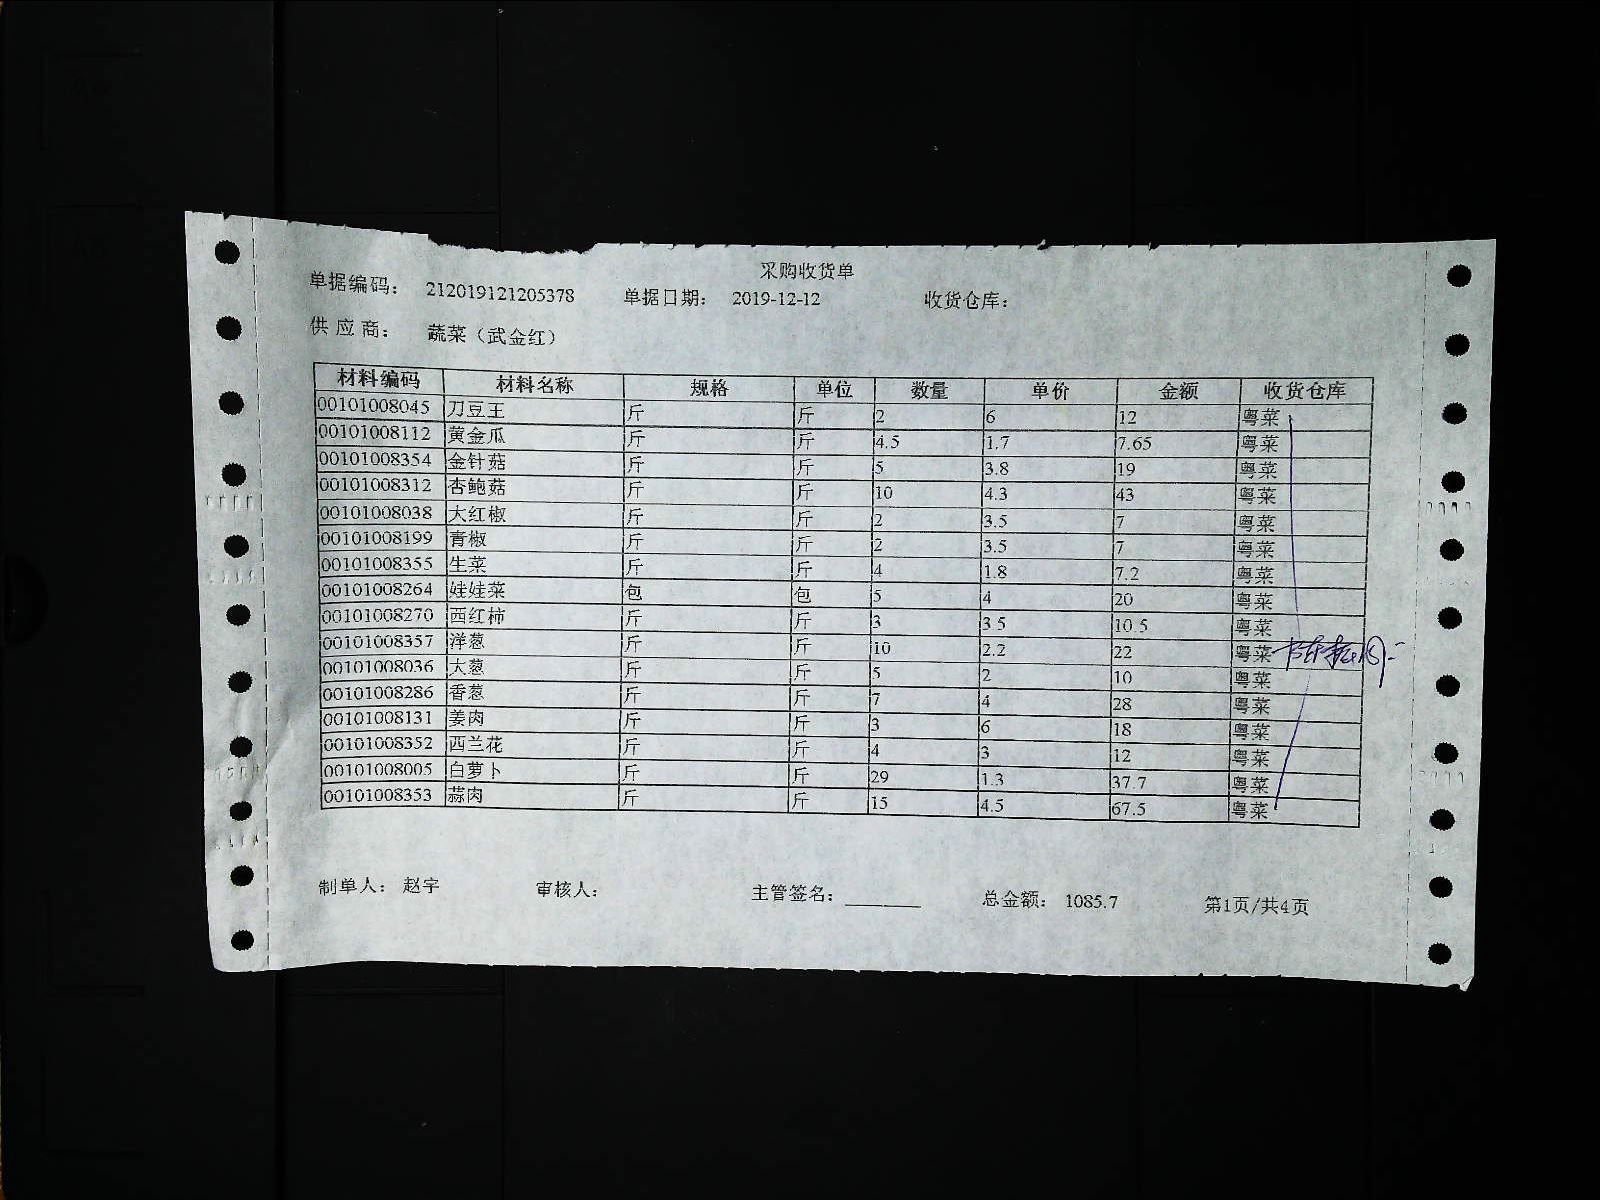 采购收货单
单据编码： 212019121205378 单据日期： 2019-12-12 收货仓库：
供应商： 蔬菜（武金红）
材料编码 材料名称 规格 单位 数量 单价 金额 收货仓库
00101008045 刀豆王 斤 斤 2 6 12 粤菜
00101008112 黄金瓜 斤 斤 4.5 1.7 7.65 粤菜
00101008354 金针菇 斤 斤 5 3.8 19 粤菜
00101008312 杏鲍菇 斤 斤 10 4.3 43 粤菜
00101008038 大红椒 斤 斤 2 3.5 7 粤菜
00101008199 青椒 斤 斤 2 3.5 7 粤菜
00101008355 生菜 斤 斤 4 1.8 7.2 粤菜
00101008264 娃娃菜 包 包 5 4 20 粤菜
00101008270 西红柿 斤 斤 3 3.5 10.5 粤菜
00101008357 洋葱 斤 斤 10 2.2 22 粤菜
00101008036 大葱 斤 斤 5 2 10 粤菜
00101008286 香葱 斤 斤 7 4 28 粤菜
00101008131 姜肉 斤 斤 3 6 18 粤菜
00101008352 西兰花 斤 斤 4 3 12 粤菜
00101008005 白萝卜 斤 斤 29 1.3 37.7 粤菜
00101008353 蒜肉 斤 斤 15 4.5 67.5 粤菜
制单人： 赵宇 审核人： 主管签名： 总金额： 1085.7 第1页/共4页